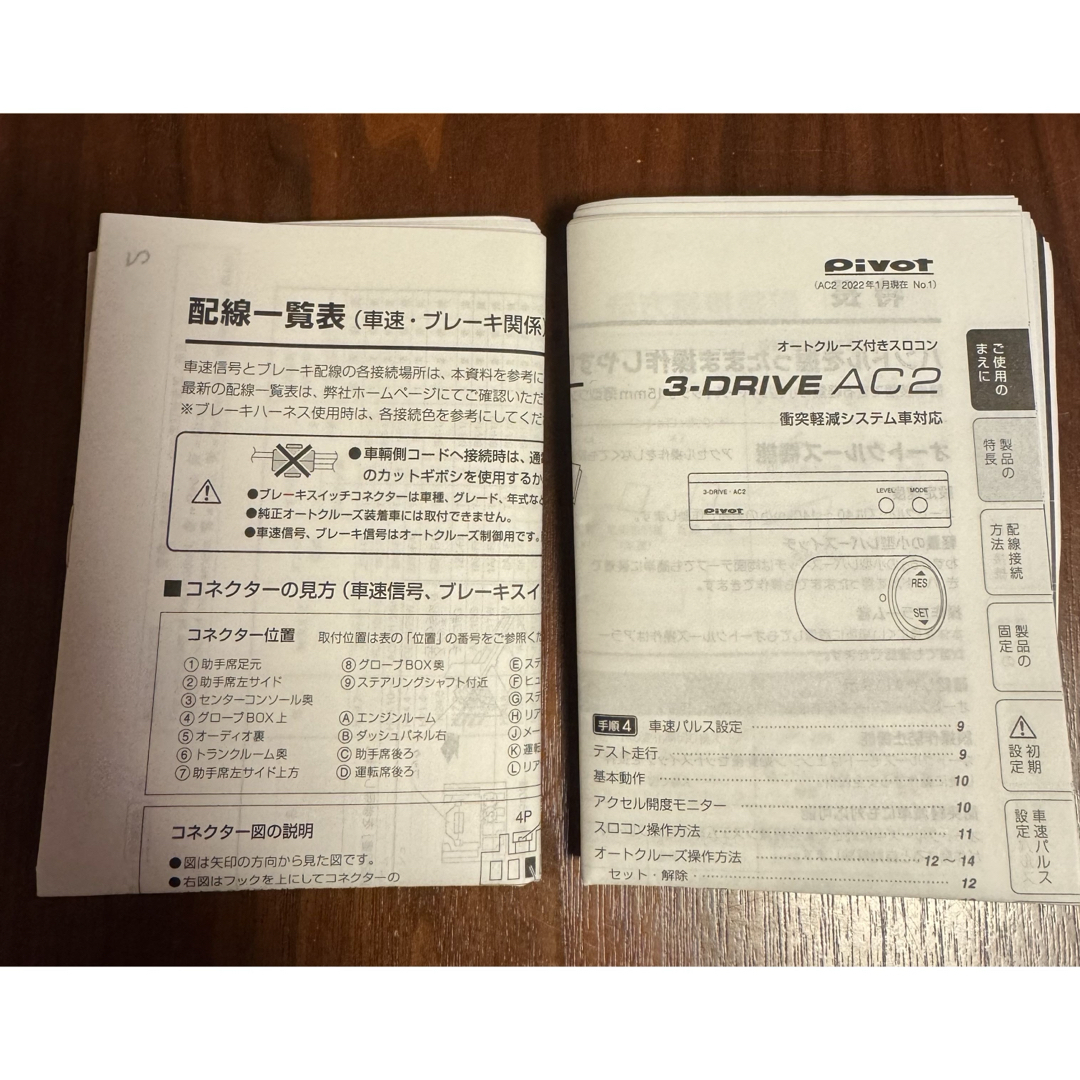 配線一覧表(車速・ブレーキ関係)
車速信号とブレーキ配線の各接続場所は、本資料を参考に
最新の配線一覧表は、弊社ホームページにてご確認いただ
※ブレーキハーネス使用時は、各接続色を参考にしてくだ
●車輌側コードへ接続時は、適
のカットギボシを使用するか
●ブレーキスイッチコネクターは車種、グレード、年式など
●純正オートクルーズ装着車には取付できません。
●車速信号、ブレーキ信号はオートクルーズ制御用です。
■コネクターの見方(車速信号、ブレーキスイ
コネクター位置 取付位置は表の「位置」の番号をご参照くだ
①助手席足元
②助手席左サイド
③センターコンソール奥
④グローブBOX上
⑤オーディオ裏
⑥トランクルーム奥
⑦助手席左サイド上方
⑧グローブBOX奥
⑨ステアリングシャフト付近
Ⓐエンジンルーム
Ⓑダッシュパネル右
Ⓒ助手席後ろ
Ⓓ運転席後ろ
Ⓔステ
Ⓕヒュ
Ⓖステ
Ⓗリア
Ⓙメー
Ⓚ運転
Ⓛリア
コネクター図の説明
●図は矢印の方向から見た図です。
●右図はフックを上にしてコネクターの
4P
Pivot
(AC2 2022年1月現在 No.1)
オートクルーズ付きスロコン
3-DRIVE AC2
衝突軽減システム車対応
3-DRIVE・AC2
Pivot
LEVEL MODE
RES
SET
手順4 車速パルス設定 9
テスト走行 9
基本動作 10
アクセル開度モニター 10
スロコン操作方法 11
オートクルーズ操作方法 12～14
セット・解除 12
ご使用の
まえに
製品の
特長
配線接続
方法
製品の
固定
初期
設定
車速パルス
設定